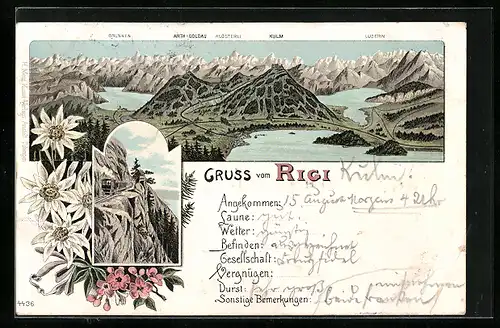 BRUNNEN ARTH-GOLDAU KLÖSTERLI KULM LUZERN
GRUSS vom RIGI Kulm!
Angekommen: 15 August Morgens 4 Uhr
Laune: gut.
Wetter: günstig
Befinden: ausgezeichnet
Gesellschaft: kreuzfidel
Vergnügen:
Durst: sehr groß
Sonstige Bemerkungen:
4436